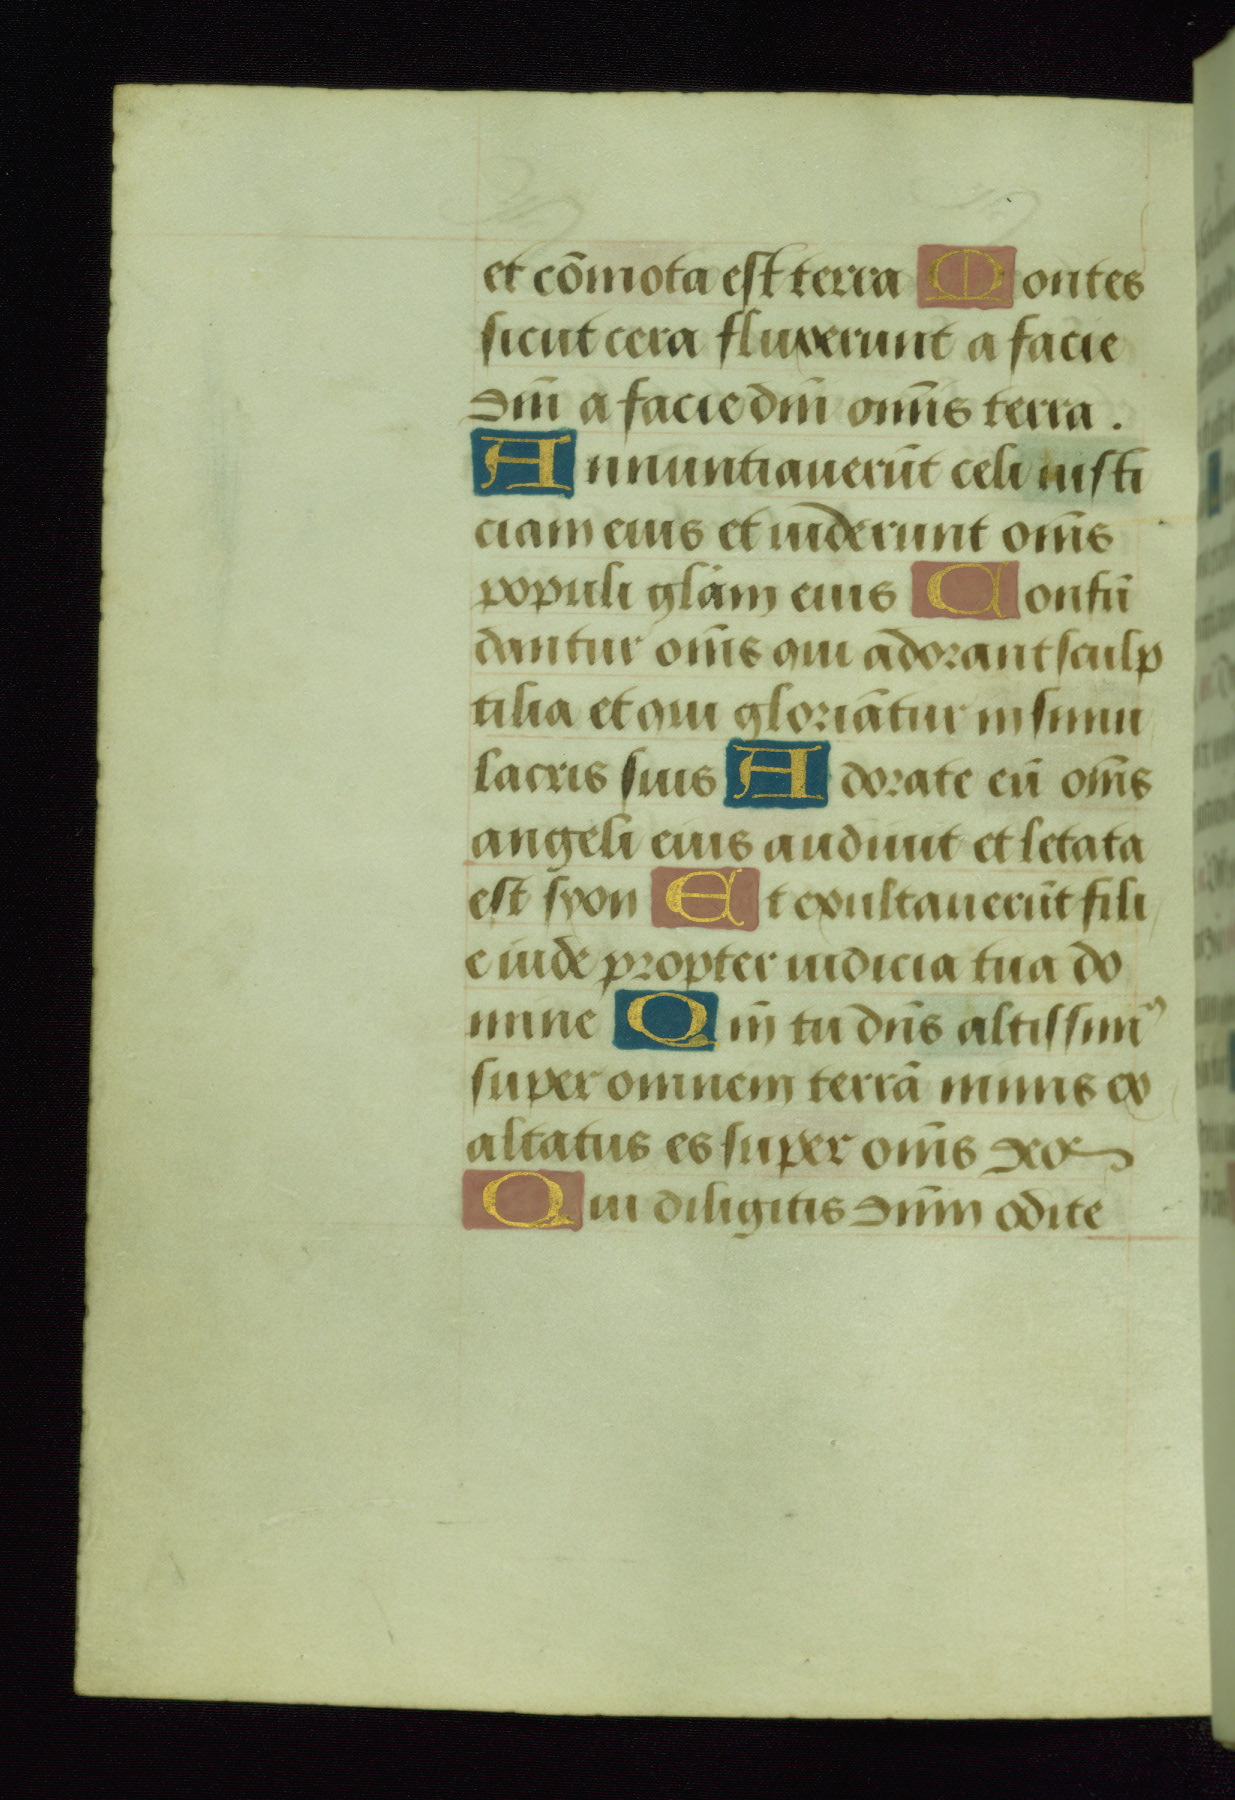 et cōmota est terra Montes
sicut cera fluxerunt a facie
dm̄i a facie dm̄i om̄is terra .
Annuntiauerūt celi iusti
ciam eius et uiderunt om̄s
populi glām eius Confū
dantur om̄s qui adorant sculp
tilia et qui gloriātur in simu
lacris suis Adorate eū om̄s
angeli eius audiuit et letata
est syon Et exultauerūt fili
e iude propter iudicia tua do
mine Qm̄ tu dn̄s altissimꝰ
super omnem terrā nimis ex
altatus es super om̄s deos
Qui diligitis dn̄m odite